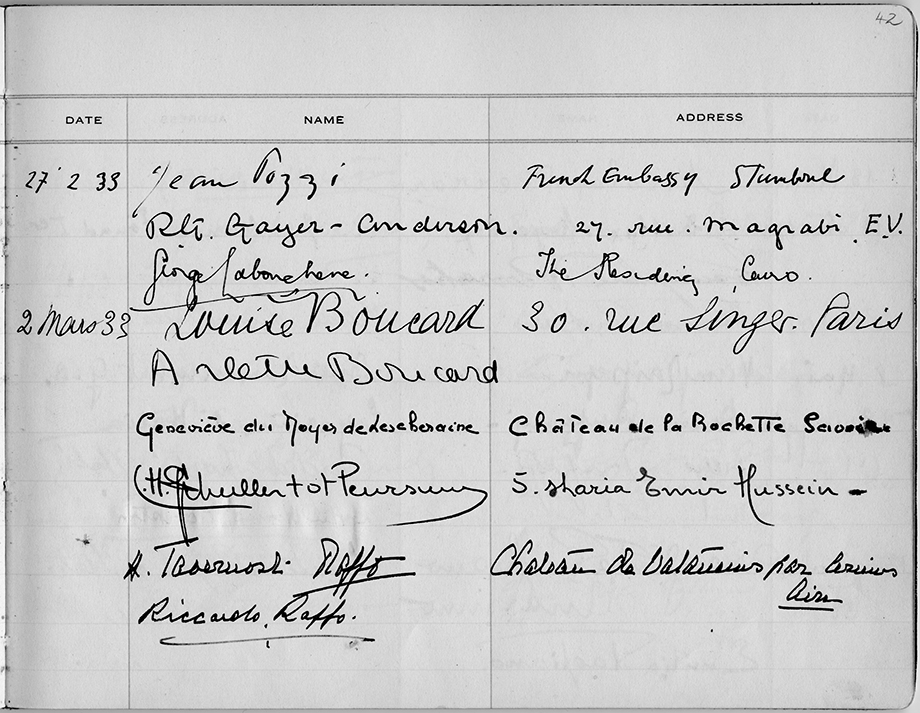 42
DATE NAME ADDRESS
27 2 33 Jean Pozzi French Embassy Stamboul
R.G. Gayer-Anderson. 27. rue. Magrabi E.V.
George Labouchere. The Residency, Cairo.
2 Mars 33 Louise Boucard 30. rue Singer. Paris
Arlette Boucard
Geneviève du Noyer de Lescheraine Château de la Rochette Savoie
5. Sharia Emir Hussein -
A. Raffo Chateau de par
Ain
Riccardo. Raffo.